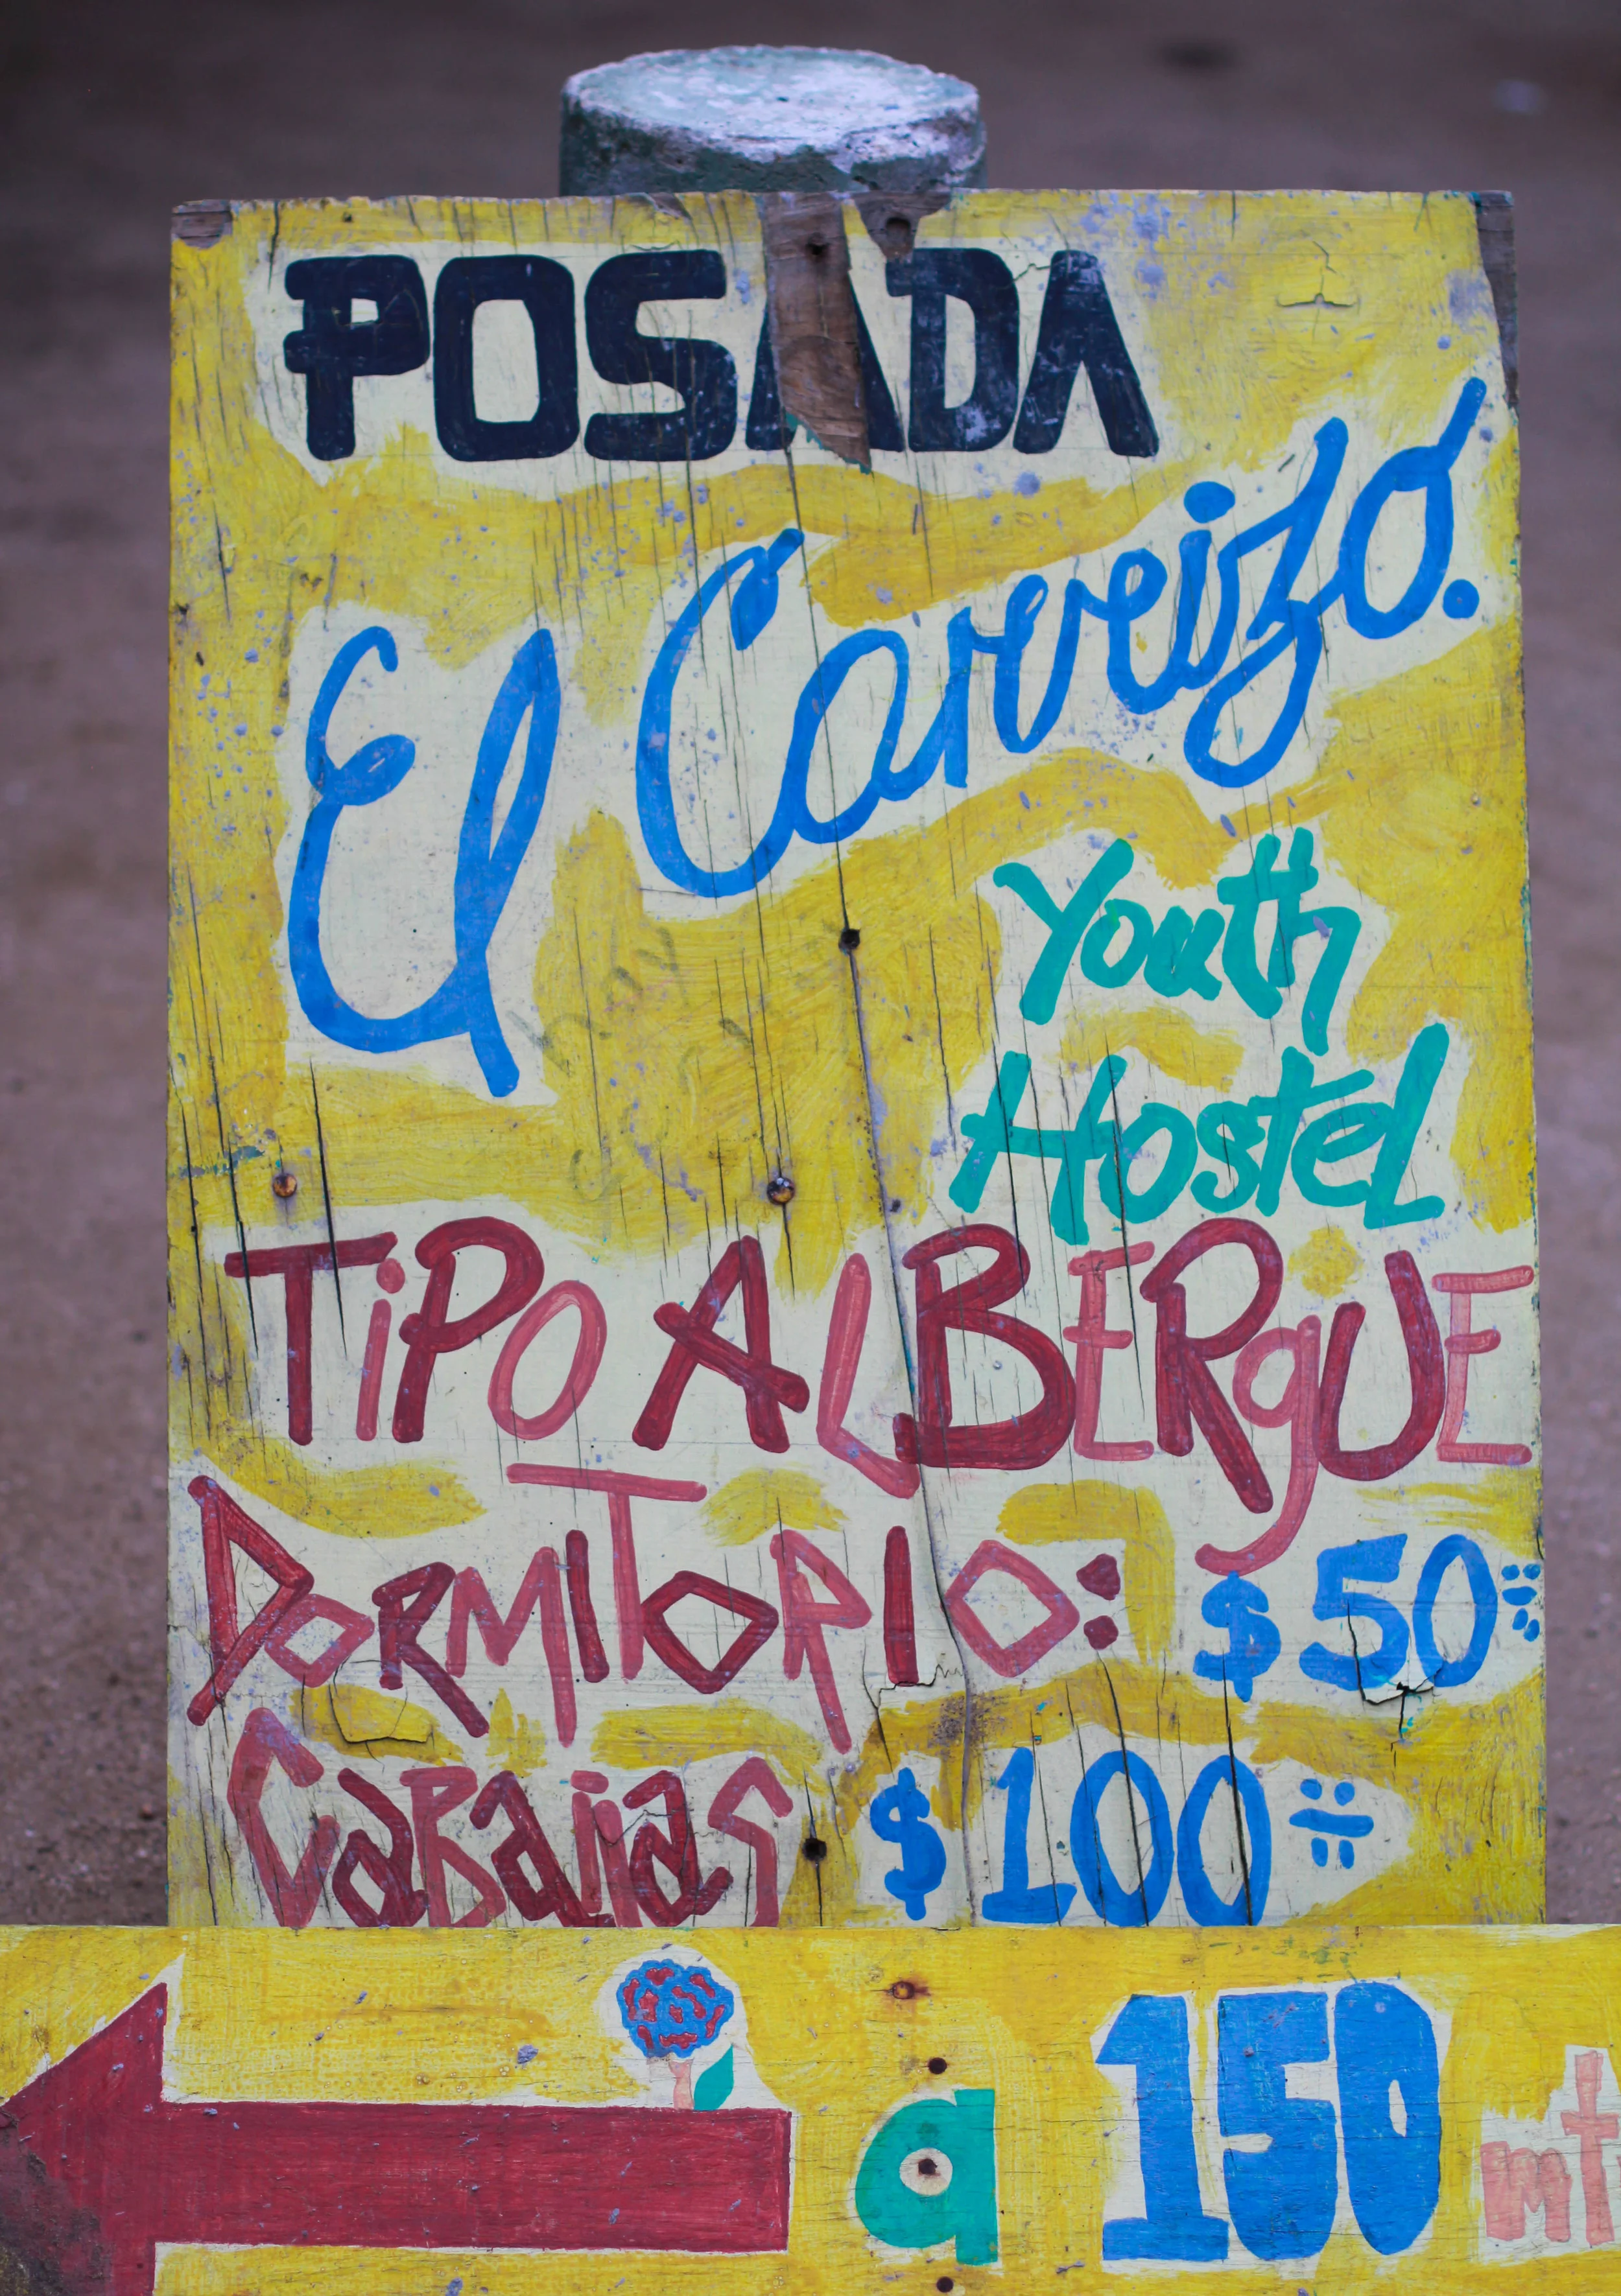 POSADA
El Carreizo.
Youth
Hostel
TiPO ALBERgUE
DORMITORIO: $50
CaBaÑas $100
a 150 mt